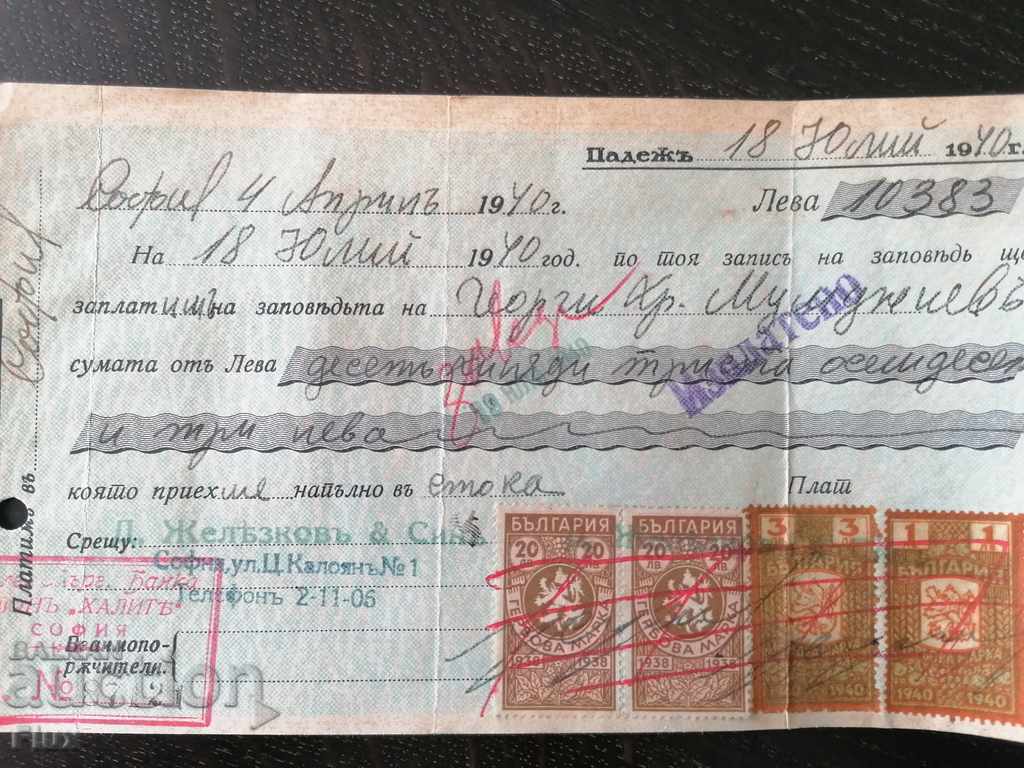 Падежъ 18 Юлий 1940 г.
София 4 Априлъ 1940 г. Лева 10383
На 18 Юлий 1940 год. по тоя записъ на заповѣдь ще
заплатимъ на заповѣдьта на Георги Хр. Мумджиевъ
сумата отъ Лева десетъ хиляди триста осемдесет
и три лева
която приехме напълно въ стока
Платимъ въ София
Плат
Срещу: Д. Желѣзковъ &
София, ул. Ц. Калоянъ №1
Телефонъ 2-11-06
Взаимопо-
ржчители.
Изплатено
Банка
"ХАЛИТЪ"
СОФИЯ
№
БЪЛГАРИЯ
20 20
ЛВ ЛВ
ГЕРБОВА МАРКА
1938 1938
БЪЛГАРИЯ
20 20
ЛВ ЛВ
ГЕРБОВА МАРКА
1938 1938
3 3
1940
1 1
ЛВ
1940 1940
auction
Flux